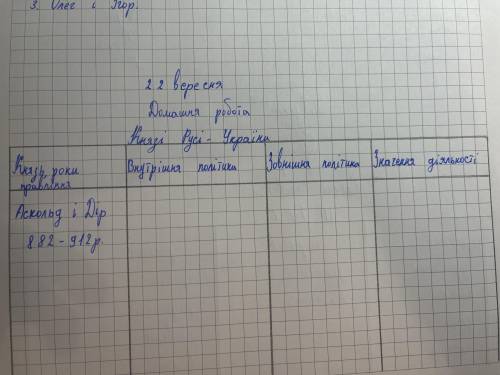 3. Олег і Ігор.
22 вересня
Домашня робота
Князі Русі - України
Князь, роки правління
Внутрішня політика
Зовнішна політика
Значення діяльності
Аскольд і Дір
882-912р.